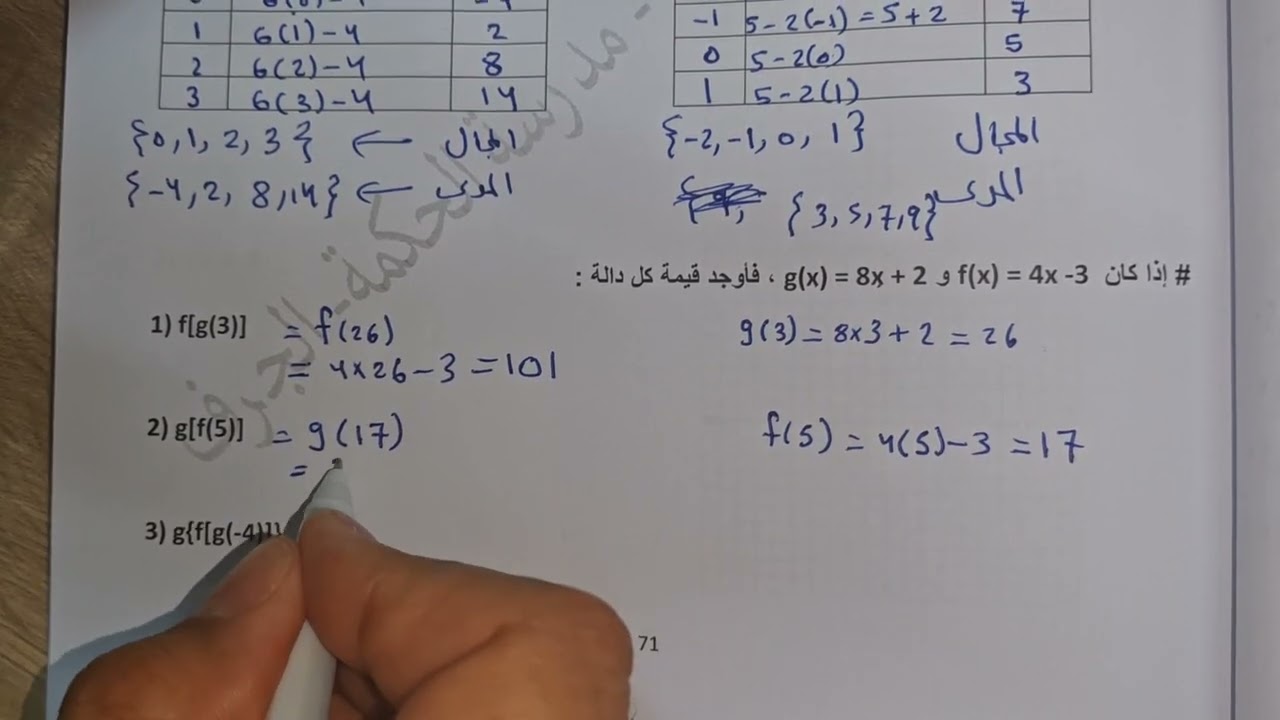 1 6(1)-4 2
2 6(2)-4 8
3 6(3)-4 14
{0,1,2,3} ← المجال
{-4,2,8,14} ← المدى
-1 5-2(-1)=5+2 7
0 5-2(0) 5
1 5-2(1) 3
{-2,-1,0,1} المجال
{3,5,7,9} المدى
# إذا كان f(x) = 4x -3 و g(x) = 8x + 2 ، فأوجد قيمة كل دالة :
1) f[g(3)] = f(26) g(3) = 8x3+2 = 26
= 4x26-3=101
2) g[f(5)] = g(17) f(5) = 4(5)-3 =17
=
3) g{f[g(-4)]}
71
مدرسة الحكمة-الجرف